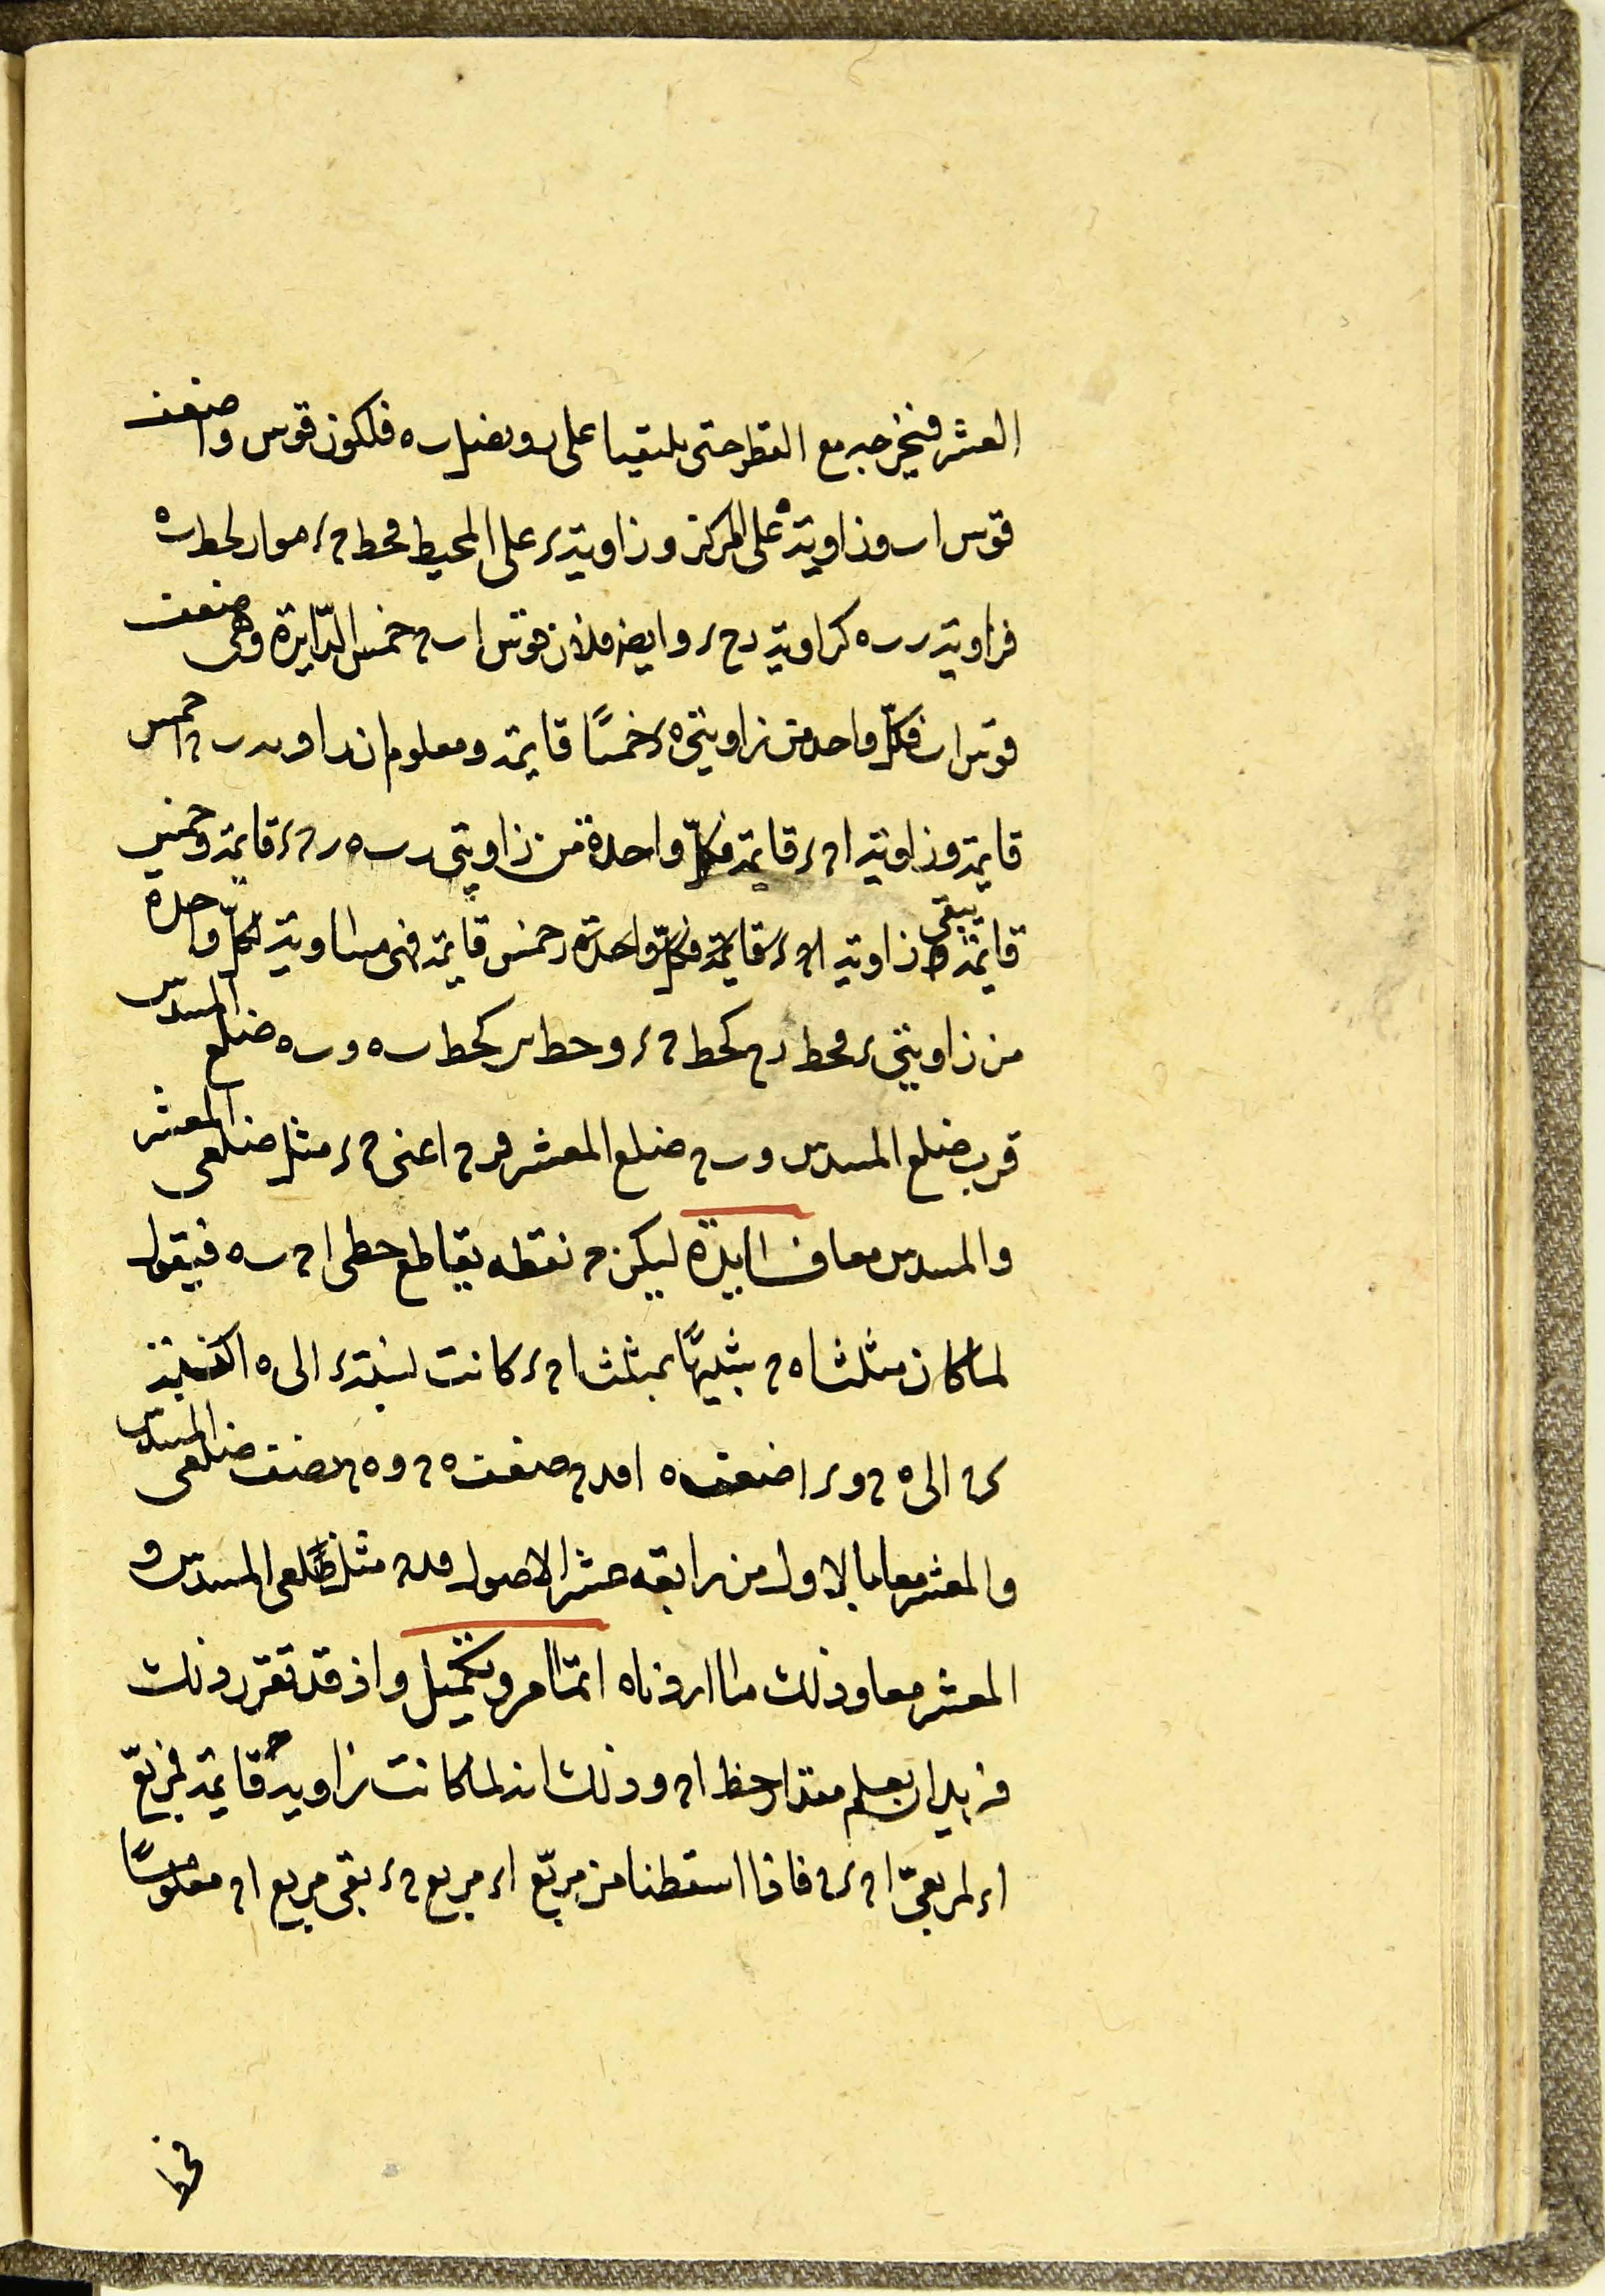 العشر فنخرجه مع القطر حتى يلتقيا على ر ونصل ره فلكون قوس وا ضعف
قوس اب وزاوية ه على المركز وزاوية ر على المحيط فخط ح ر مواز لخط ب ه
فزاوية ر ب ه كزاوية ر ح ر وايضا فلان قوس اب ح خمس الدايرة وهى ضعف
قوس اب فكل واحد من زاويتى ه ر خمسا قايمة ومعلوم ان زاوية ر ب ح ا خمس
قايمة وزاوية ا ح ر قايمة فكل واحدة من زاويتى ر ب ه ر ح ر قايمة وخمس
قايمة يبقى زاوية ا ح ر قايمة فكل واحدة خمس قايمة فهى مساوية لكل واحدة
من زاويتى ر فخط ر ح كخط ح ر وخط ب ر كخط ب ه و ب ه ضلع المسدس
فرب ضلع المسدس و ب ح ضلع المعشر فرح اعنى ح ر مثل ضلعى المعشر
والمسدس معا فايدة ليكن ح نقطه تقاطع خطى ا ح ب ه فيقول
لما كان مثلثا ه ح شبيها بمثلث ا ح ر كانت نسبة ر ا الى ه ا كنسبة
ر ح الى ه ح و ر ا ضعف ه ا فر ح ضعف ه ح و ه ح نصف ضلعى المسدس
والمعشر معا بالاول من رابعه عشر الاصول فر ح مثل ضلعى المسدس و
المعشر معا وذلك ما اردناه اتمام وتكميل واذ قد تقرر ذلك
فنريد ان نعلم مقدار خط ا ح وذلك انه لما كانت زاوية ح قايمة فمربع
ا ر لمربعى ا ح ر ح فاذا اسقطنا من مربع ا ر مربع ح ر بقى مربع ا ح معلوما
فخط